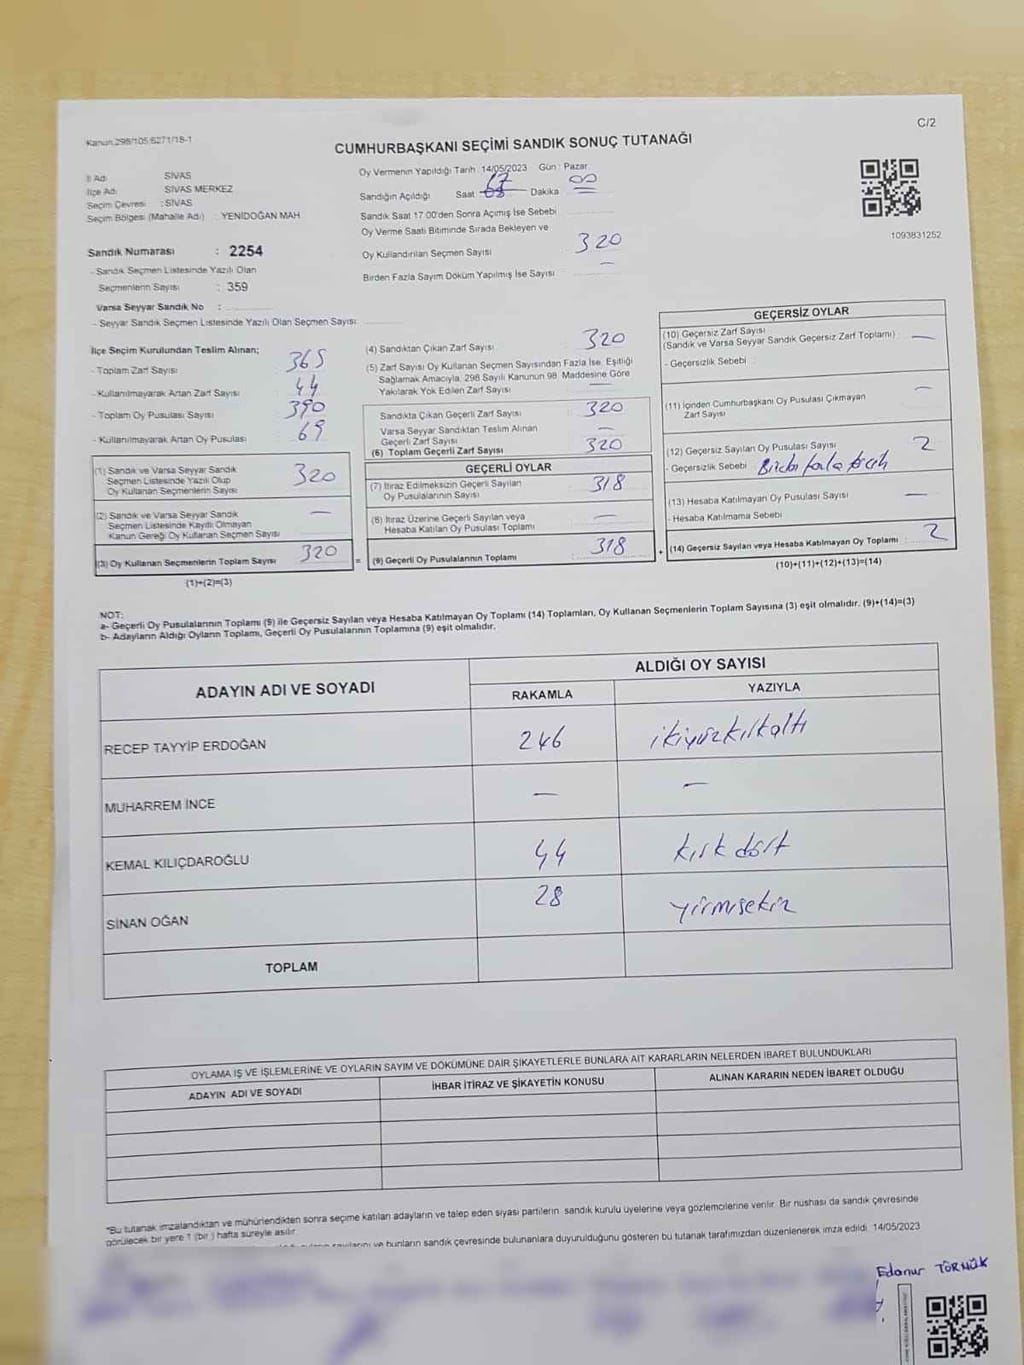 C/2
Kanun:298/105:6271/18-1
CUMHURBAŞKANI SEÇİMİ SANDIK SONUÇ TUTANAĞI
İl Adı SİVAS
İlçe Adı SİVAS MERKEZ
Seçim Çevresi : SİVAS
Seçim Bölgesi (Mahalle Adı) : YENİDOĞAN MAH
Sandık Numarası : 2254
- Sandık Seçmen Listesinde Yazılı Olan
Seçmenlerin Sayısı : 359
Varsa Seyyar Sandık No :
- Seyyar Sandık Seçmen Listesinde Yazılı Olan Seçmen Sayısı:
Oy Vermenin Yapıldığı Tarih : 14/05/2023 Gün : Pazar
Sandığın Açıldığı Saat 17 Dakika 00
Sandık Saat 17 00'den Sonra Açımış İse Sebebi
Oy Verme Saati Bitiminde Sırada Bekleyen ve
Oy Kullandırılan Seçmen Sayısı 320
Birden Fazla Sayım Döküm Yapılmış İse Sayısı —
1093831252
İlçe Seçim Kurulundan Teslim Alınan;
- Toplam Zarf Sayısı 365
- Kullanılmayarak Artan Zarf Sayısı 44
- Toplam Oy Pusulası Sayısı 390
- Kullanılmayarak Artan Oy Pusulası 69
(1) Sandık ve Varsa Seyyar Sandık
Seçmen Listesinde Yazılı Olup
Oy Kullanan Seçmenlerin Sayısı 320
(2) Sandık ve Varsa Seyyar Sandık
Seçmen Listesinde Kayıtlı Olmayan
Kanun Gereği Oy Kullanan Seçmen Sayısı —
(3) Oy Kullanan Seçmenlerin Toplam Sayısı 320
(1)+(2)=(3)
(4) Sandıktan Çıkan Zarf Sayısı 320
(5) Zarf Sayısı Oy Kullanan Seçmen Sayısından Fazla İse, Eşitliği
Sağlamak Amacıyla, 298 Sayılı Kanunun 98. Maddesine Göre
Yakılarak Yok Edilen Zarf Sayısı —
Sandıkta Çıkan Geçerli Zarf Sayısı 320
Varsa Seyyar Sandıktan Teslim Alınan
Geçerli Zarf Sayısı —
(6) Toplam Geçerli Zarf Sayısı 320
GEÇERLİ OYLAR
(7) İtiraz Edilmeksizin Geçerli Sayılan
Oy Pusulalarının Sayısı 318
(8) İtiraz Üzerine Geçerli Sayılan veya
Hesaba Katılan Oy Pusulası Toplamı —
= (9) Geçerli Oy Pusulalarının Toplamı : 318
GEÇERSİZ OYLAR
(10) Geçersiz Zarf Sayısı
(Sandık ve Varsa Seyyar Sandık Geçersiz Zarf Toplamı) —
- Geçersizlik Sebebi
(11) İçinden Cumhurbaşkanı Oy Pusulası Çıkmayan —
Zarf Sayısı
(12) Geçersiz Sayılan Oy Pusulası Sayısı 2
- Geçersizlik Sebebi Birden fazla tercih
(13) Hesaba Katılmayan Oy Pusulası Sayısı —
- Hesaba Katılmama Sebebi
+ (14) Geçersiz Sayılan veya Hesaba Katılmayan Oy Toplamı : 2
(10)+(11)+(12)+(13)=(14)
NOT:
a- Geçerli Oy Pusulalarının Toplamı (9) ile Geçersiz Sayılan veya Hesaba Katılmayan Oy Toplamı (14) Toplamları, Oy Kullanan Seçmenlerin Toplam Sayısına (3) eşit olmalıdır. (9)+(14)=(3)
b- Adayların Aldığı Oyların Toplamı, Geçerli Oy Pusulalarının Toplamına (9) eşit olmalıdır.
ADAYIN ADI VE SOYADI
ALDIĞI OY SAYISI
RAKAMLA YAZIYLA
RECEP TAYYİP ERDOĞAN 246 ikiyüzkırkaltı
MUHARREM İNCE — —
KEMAL KILIÇDAROĞLU 44 kırk dört
SİNAN OĞAN 28 yirmisekiz
TOPLAM
OYLAMA İŞ VE İŞLEMLERİNE VE OYLARIN SAYIM VE DÖKÜMÜNE DAİR ŞİKAYETLERLE BUNLARA AİT KARARLARIN NELERDEN İBARET BULUNDUKLARI
ADAYIN ADI VE SOYADI İHBAR İTİRAZ VE ŞİKAYETİN KONUSU ALINAN KARARIN NEDEN İBARET OLDUĞU
*Bu tutanak imzalandıktan ve mühürlendikten sonra seçime katılan adayların ve talep eden siyasi partilerin sandık kurulu üyelerine veya gözlemcilerine verilir. Bir nushası da sandık çevresinde
görülecek bir yere 1 (bir ) hafta süreyle asılır.
ve bunların sandık çevresinde bulunanlara duyurulduğunu gösteren bu tutanak tarafımızdan düzenlenerek imza edildi. 14/05/2023
Edanur TÖRNÜK